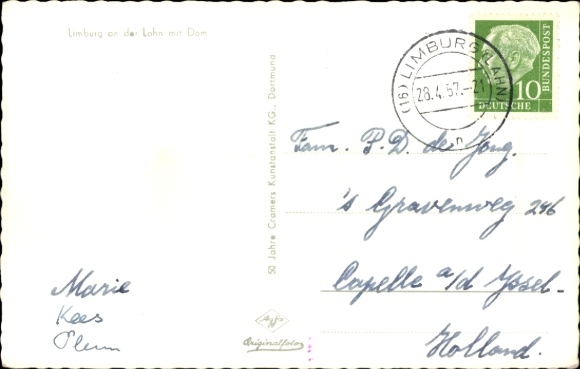 Limburg an der Lahn mit Dom
(16) LIMBURG (LAHN)
28.4.57.-21
n
10
DEUTSCHE
BUNDESPOST
Fam. P.D. de Jong.
's Gravenweg 246
Capelle a/d Yssel-
Holland.
Marie
Kees
50 Jahre Cramers Kunstanstalt KG., Dortmund
Originalfoto